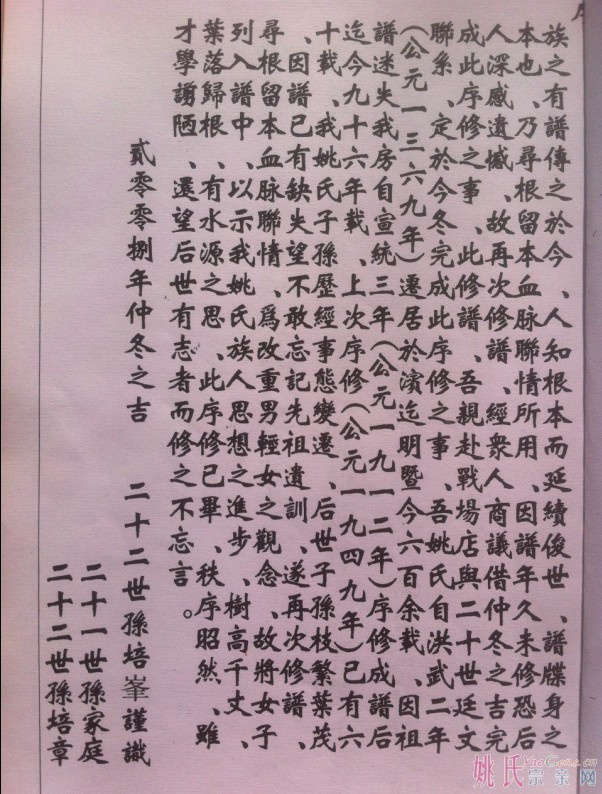 族之有譜傳之於今、人知根本而延續俊世、譜牒身之
本也、乃尋根留本血脉聯情所用、因譜年久未修恐后
人深感遺憾、故再次修譜、經衆人商議借仲冬之吉完
成此序修之事、此修譜、吾親赴戰場店與二十世廷文
聯系、定於今冬完成此序修之事、吾姚氏自洪武二年
(公元一三六九年)遷居於濱迄明暨今六百余載、因祖
譜迷失我房自宣統三年(公元一九一二年)序修成譜后
迄今九十六年載、上次序修(公元一九四九年)已有六
十載、我姚氏子孫、歷經事態變遷、后世子孫枝繁葉茂
、因譜已有缺失望不敢忘記先祖遺訓、遂再次修譜、
尋根留本血脉聯情、爲改重男輕女之觀念、故將女子
列入譜中、以示我姚氏族人思想之進步、樹高千丈、
葉落歸根、有水源之思、此序修已畢、秩序昭然、雖
才學謭陋、還望后世有志者而修之不忘言。
貳零零捌年仲冬之吉 二十二世孫培峯謹識
二十一世孫家庭
二十二世孫培章
姚氏宗亲网
YaoGens.cn